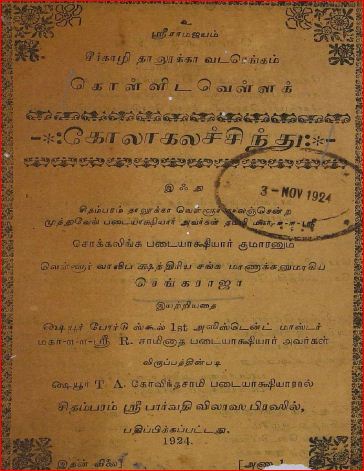 உ
ஸ்ரீராமஜயம்
சீர்காழி தாலூக்கா வடரெங்கம்
கொள்ளிடவெள்ளக்
கோலாகலச்சிந்து
இஃது
3-NOV 1924
சிதம்பரம் தாலூக்கா வெள்ளூர்
முத்துவேல் படையாக்ஷியார் அவர்கள் தம்பி ஸ்ரீ
சொக்கலிங்க படையாக்ஷியார் குமாரனும்
வெள்ளூர் வாலிப க்ஷத்திரிய சங்க மாணாக்கனுமாகிய
ரெங்கராஜா
இயற்றியதை
போர்டு ஸ்கூல் 1st அஸிஸ்டெண்ட் மாஸ்டர்
மகா-௱-௱-ஸ்ரீ R. சாமிநாத படையாக்ஷியார் அவர்கள்
விருப்பத்தின்படி
T. A. கோவிந்தசாமி படையாக்ஷியாரால்
சிதம்பரம் ஸ்ரீ பார்வதி விலாஸ பிரஸில்,
பதிப்பிக்கப்பட்டது.
1924.
இதன் விலை] [அணா